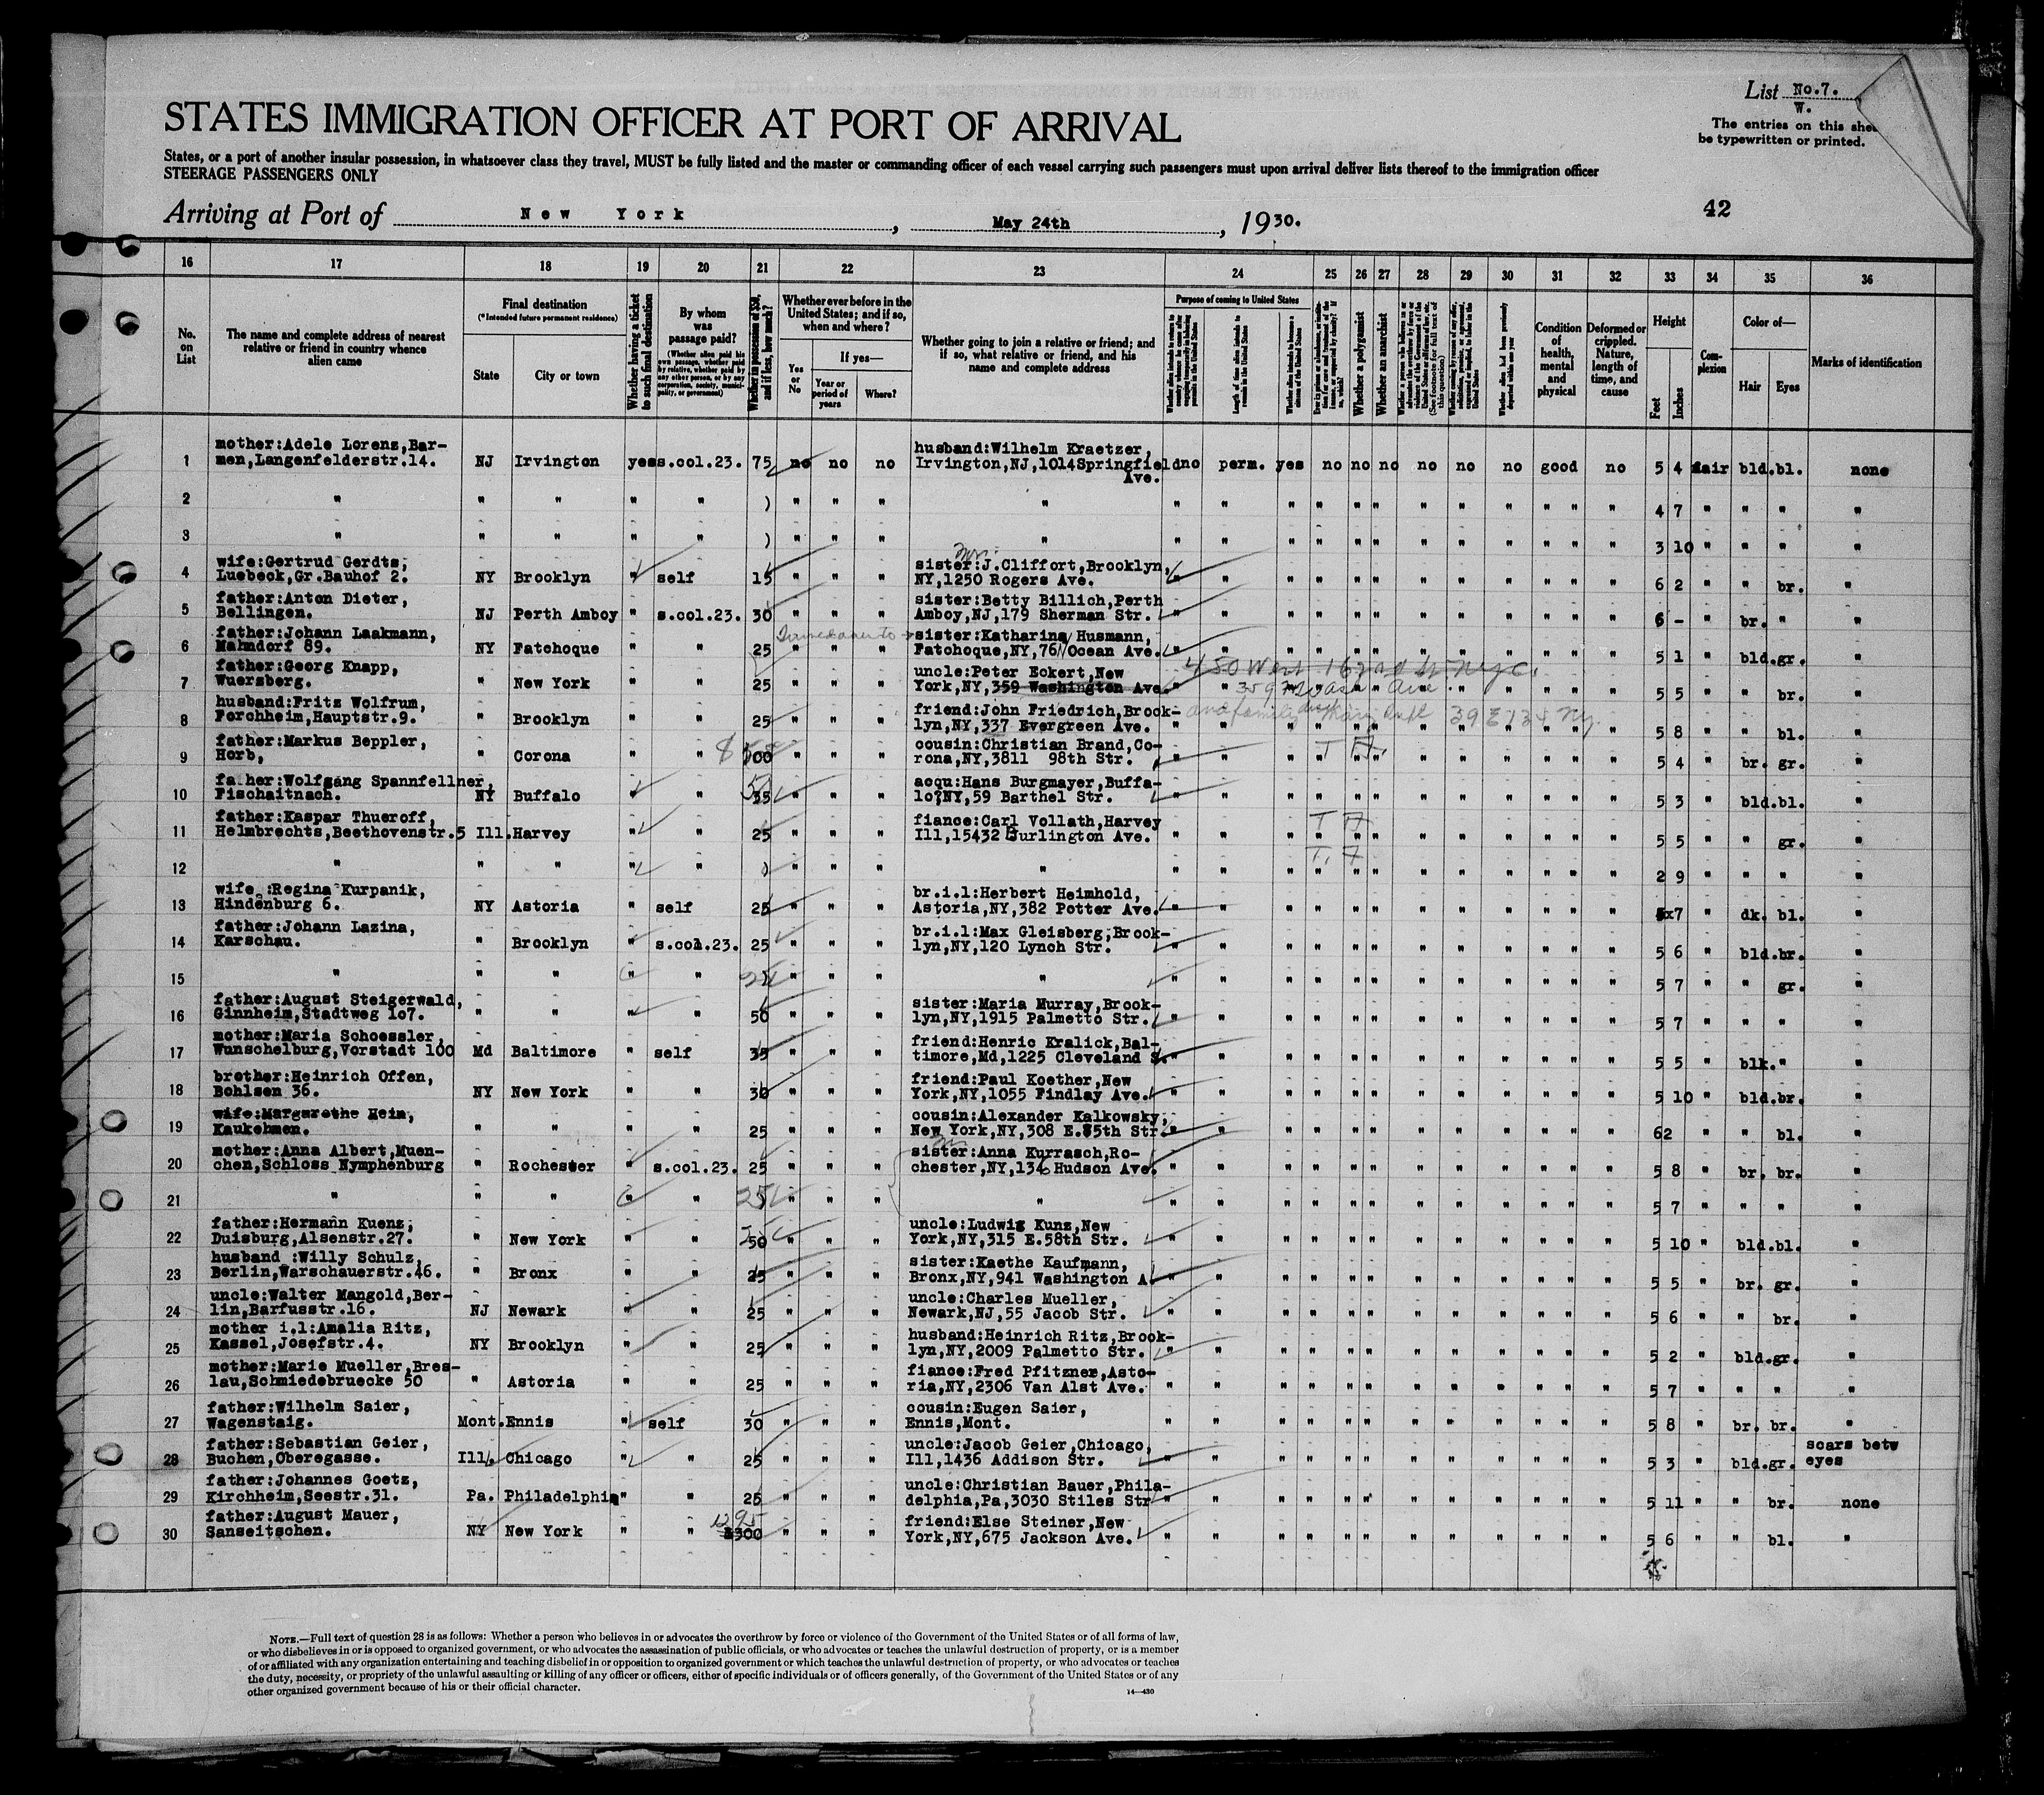 List No.7.
W.
The entries on this
be typewritten or printed.
STATES IMMIGRATION OFFICER AT PORT OF ARRIVAL
States, or a port of another insular possession, in whatsoever class they travel, MUST be fully listed and the master or commanding officer of each vessel carrying such passengers must upon arrival deliver lists thereof to the immigration officer
STEERAGE PASSENGERS ONLY
Arriving at Port of New York, May 24th, 1930.
42
16 17 18 19 20 21 22 23 24 25 26 27 28 29 30 31 32 33 34 35 36
No. on List
The name and complete address of nearest relative or friend in country whence alien came
Final destination
(*Intended future permanent residence)
State
City or town
Whether having a ticket to such final destination
By whom was passage paid?
(Whether alien paid his own passage, whether paid by relative, whether paid by any other person, or by any corporation, society, municipality, or government)
Whether in possession of $50, and if less, how much?
Whether ever before in the United States; and if so, when and where?
Yes or No
If yes—
Year or period of years
Where?
Whether going to join a relative or friend; and if so, what relative or friend, and his name and complete address
Purpose of coming to United States
Length of time alien intends to remain in the United States
Whether a polygamist
Whether an anarchist
Condition of health, mental and physical
Deformed or crippled. Nature, length of time, and cause
Height
Feet
Inches
Complexion
Color of—
Hair
Eyes
Marks of identification
1 mother:Adele Lorenz,Barmen,Langenfelderstr.14. NJ Irvington yes s.col.23. 75 no no no husband:Wilhelm Kraetzer, Irvington,NJ,1014Springfield Ave. no perm. yes no no no no no no good no 5 4 fair bld. bl. none
2 " " " " " ) " " " " " " " " " " " " " " " 4 7 " " " "
3 " " " " " ) " " " " " " " " " " " " " " " 3 10 " " " "
4 wife:Gertrud Gerdts, Luebeck,Gr.Bauhof 2. NY Brooklyn " self 15 " " " sister:J.Cliffort,Brooklyn, NY,1250 Rogers Ave. " " " " " " " " " " " 6 2 " " br. "
5 father:Anton Dieter, Bellingen. NJ Perth Amboy " s.col.23. 30 " " " sister:Betty Billich,Perth Amboy,NJ,179 Sherman Str. " " " " " " " " " " " 6 - " br. " "
6 father:Johann Laakmann, Mahndorf 89. NY Patchoque " " 25 " " " sister:Katharina Husmann, Patchoque,NY,76 Ocean Ave. " " " " " " " " " " " 5 1 " bld. gr. "
7 father:Georg Knapp, Wuersberg. " New York " " 25 " " " uncle:Peter Eckert,New York,NY,359 Washington Ave. 450 West 162nd St NYC. " " " " " " " " " " " 5 5 " " br. "
8 husband:Fritz Wolfrum, Forchheim,Hauptstr.9. " Brooklyn " " 25 " " " friend:John Friedrich,Brooklyn,NY,337 Evergreen Ave. " " " " " " " " " " " 5 8 " " bl. "
9 father:Markus Beppler, Horb, " Corona " " 500 " " " cousin:Christian Brand,Corona,NY,3811 98th Str. " " " " " " " " " " " 5 4 " br. gr. "
10 father:Wolfgang Spannfellner, Fischaitnach. NY Buffalo " " 35 " " " acqu:Hans Burgmayer,Buffalo?NY,59 Barthel Str. " " " " " " " " " " " 5 3 " bld. bl. "
11 father:Kaspar Thueroff, Helmbrechts,Beethovenstr.5 Ill. Harvey " " 25 " " " fiance:Carl Vollath,Harvey Ill,15432 Burlington Ave. " " " " " " " " " " " 5 5 " " gr. "
12 " " " " " ) " " " " " " " " " " " " " " " 2 9 " " " "
13 wife :Regina Kurpanik, Hindenburg 6. NY Astoria " self 25 " " " br.i.l:Herbert Heimhold, Astoria,NY,382 Potter Ave. " " " " " " " " " " " 5x7 " dk. bl. "
14 father:Johann Lazina, Karschau. " Brooklyn " s.col.23. 25 " " " br.i.l:Max Gleisberg,Brooklyn,NY,120 Lynch Str. " " " " " " " " " " " 5 6 " bld. br. "
15 " " " " " 25 " " " " " " " " " " " " " " " 5 7 " " gr. "
16 father:August Steigerwald, Ginnheim,Stadtweg 1o7. " " " " 50 " " " sister:Maria Murray,Brooklyn,NY,1915 Palmetto Str. " " " " " " " " " " " 5 7 " " " "
17 mother:Maria Schoessler, Wunschelburg,Vorstadt 100 Md Baltimore " self 35 " " " friend:Henric Kralick,Baltimore,Md,1225 Cleveland S. " " " " " " " " " " " 5 5 " blk. " "
18 brother:Heinrich Offen, Bohlsen 36. NY New York " " 30 " " " friend:Paul Koether,New York,NY,1055 Findlay Ave. " " " " " " " " " " " 5 10 " bld. br. "
19 wife:Margarethe Hein, Kaukehmen. " " " " 25 " " " cousin:Alexander Kalkowsky, New York,NY,308 E.85th Str. " " " " " " " " " " " 62 " " bl. "
20 mother:Anna Albert,Muenchen,Schloss Nymphenburg " Rochester " s.col.23. 25 " " " sister:Anna Kurrasch,Rochester,NY,134 Hudson Ave. " " " " " " " " " " " 5 8 " br. br. "
21 " " " " " 25 " " " " " " " " " " " " " " " 5 7 " " " "
22 father:Hermann Kuenz, Duisburg,Alsenstr.27. " New York " " 50 " " " uncle:Ludwig Kunz,New York,NY,315 E.58th Str. " " " " " " " " " " " 5 10 " bld. bl. "
23 husband :Willy Schulz, Berlin,Warschauerstr.46. " Bronx " " 25 " " " sister:Kaethe Kaufmann, Bronx,NY,941 Washington A. " " " " " " " " " " " 5 5 " br. gr. "
24 uncle:Walter Mangold,Berlin,Barfusstr.16. NJ Newark " " 25 " " " uncle:Charles Mueller, Newark,NJ,55 Jacob Str. " " " " " " " " " " " 5 6 " " br. "
25 mother i.l:Amalia Ritz, Kassel,Josefstr.4. NY Brooklyn " " 25 " " " husband:Heinrich Ritz,Brooklyn,NY,2009 Palmetto Str. " " " " " " " " " " " 5 2 " bld. gr. "
26 mother:Marie Mueller,Breslau,Schmiedebruecke 50 " Astoria " " 25 " " " fiance:Fred Pfitzner,Astoria,NY,2306 Van Alst Ave. " " " " " " " " " " " 5 7 " " " "
27 father:Wilhelm Saier, Wagenstaig. Mont. Ennis " self 30 " " " cousin:Eugen Saier, Ennis,Mont. " " " " " " " " " " " 5 8 " br. br. "
28 father:Sebastian Geier, Buchen,Oberegasse. Ill. Chicago " " 25 " " " uncle:Jacob Geier,Chicago, Ill,1436 Addison Str. " " " " " " " " " " " 5 3 " bld. gr. scars betw eyes
29 father:Johannes Goetz, Kirchheim,Seestr.31. Pa. Philadelphia " " 25 " " " uncle:Christian Bauer,Philadelphia,Pa,3030 Stiles Str " " " " " " " " " " " 5 11 " " br. none
30 father:August Mauer, Sanseitschen. NY New York " " 1295 300 " " " friend:Else Steiner,New York,NY,675 Jackson Ave. " " " " " " " " " " " 5 6 " " bl. "
NOTE.—Full text of question 28 is as follows: Whether a person who believes in or advocates the overthrow by force or violence of the Government of the United States or of all forms of law,
or who disbelieves in or is opposed to organized government, or who advocates the assassination of public officials, or who advocates or teaches the unlawful destruction of property, or is a member
of or affiliated with any organization entertaining and teaching disbelief in or opposition to organized government or which teaches the unlawful destruction of property, or who advocates or teaches
the duty, necessity, or propriety of the unlawful assaulting or killing of any officer or officers, either of specific individuals or of officers generally, of the Government of the United States or of any
other organized government because of his or their official character.
14—430